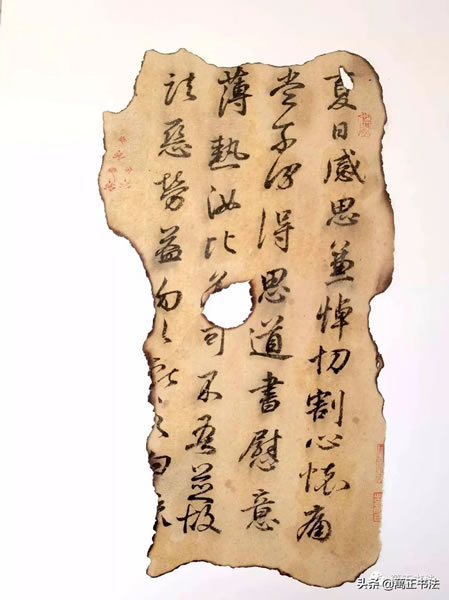 夏日感思兼悼切割心懷痛
當奈何得思道書慰意
薄熱汝比可不吾並故
惡勞益勿
头条 @萬正书法